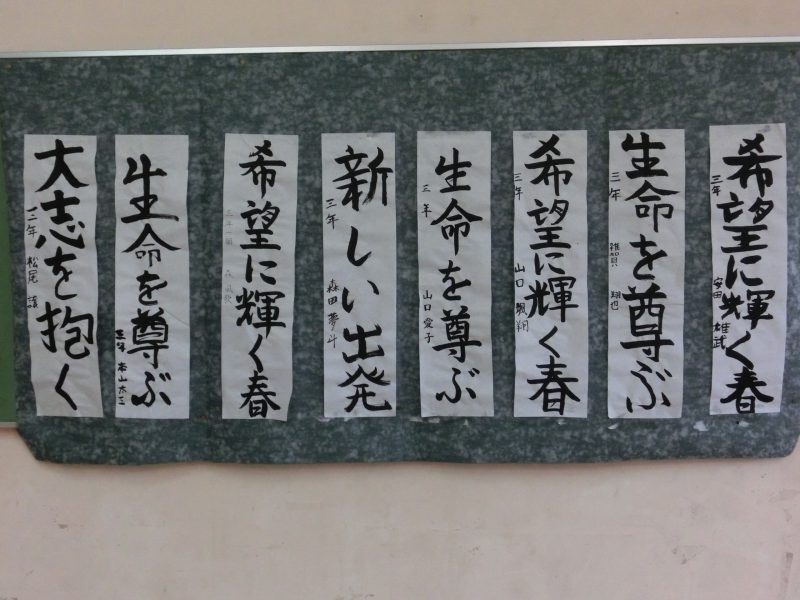 希望に輝く春
三年 安田 雄武
生命を尊ぶ
三年 雑賀 翔也
希望に輝く春
三年 山口 颯翔
生命を尊ぶ
三年 山口愛子
新しい出発
三年 森田夢斗
希望に輝く春
三年 森
生命を尊ぶ
三年 本山
大志を抱く
三年 松尾